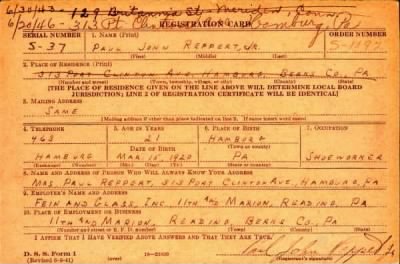 6/30/43 - 129 Britannia St., Meriden, Conn.
6/20/46 - 313 Pt. Clinton Ave Hamburg, Pa
REGISTRATION CARD
SERIAL NUMBER 1. Name (Print) ORDER NUMBER
S-37 PAUL JOHN REPPERT, JR.
(First) (Middle) (Last)
2. PLACE OF RESIDENCE (Print)
313 PORT CLINTON AVE, HAMBURG, BERKS CO., PA
(Number and street) (Town, township, village, or city) (County) (State)
[THE PLACE OF RESIDENCE GIVEN ON THE LINE ABOVE WILL DETERMINE LOCAL BOARD
JURISDICTION; LINE 2 OF REGISTRATION CERTIFICATE WILL BE IDENTICAL]
3. MAILING ADDRESS
SAME
[Mailing address if other than place indicated on line 2. If same insert word same]
4. TELEPHONE 5. AGE IN YEARS 6. PLACE OF BIRTH 7. OCCUPATION
463 21 HAMBURG
DATE OF BIRTH (Town or county)
HAMBURG MAR. 15, 1920 PA SHOEWORKER
(Exchange) (Number) (Mo.) (Day) (Yr.) (State or country)
8. NAME AND ADDRESS OF PERSON WHO WILL ALWAYS KNOW YOUR ADDRESS
MRS. PAUL REPPERT, 313 PORT CLINTON AVE, HAMBURG, PA
9. EMPLOYER'S NAME AND ADDRESS
FEIN AND GLASS, INC. 11TH AND MARION, READING, PA
10. PLACE OF EMPLOYMENT OR BUSINESS
11TH AND MARION, READING, BERKS CO., PA
(Number and street or R. F. D. number) (Town) (County) (State)
I AFFIRM THAT I HAVE VERIFIED ABOVE ANSWERS AND THAT THEY ARE TRUE.
Paul John Reppert Jr.
D. S. S. Form 1
(Revised 6-9-41) (over) (Registrant's signature)